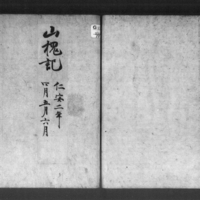 山槐記
仁安二年
四月五月六月